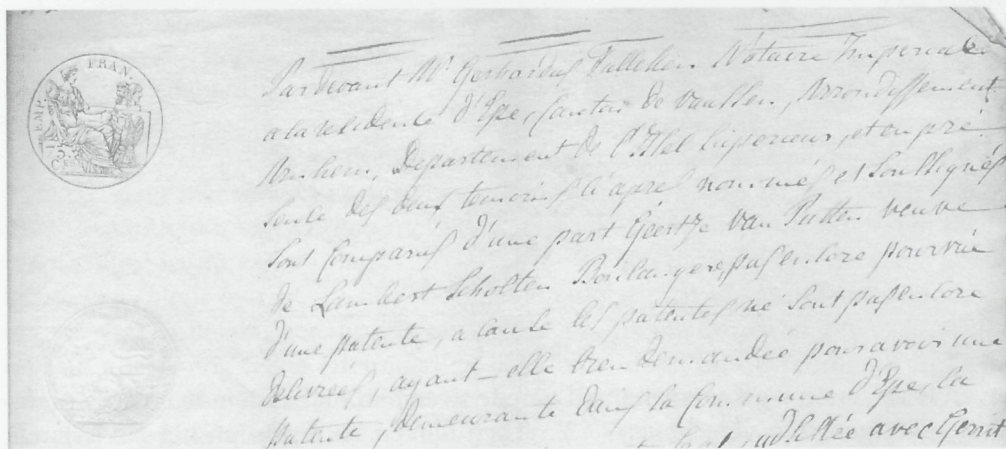 FRAN.
EMP.
Pardevant Mr Gerhardus Van Notaire Imperial
a la residence d'Epe, Canton de Vaassen, Arrondissement
Arnhem, Departement de l'Issel Superieur, et en pré
sence des deux temoins ci apres nommés et Soussignés
Sont Comparus d'une part Geertje van Putten veuve
de Lambert Scholten Boulangere, pas encore pourvue
d'une patente, a cause les patentes ne Sont pas encore
delivrées, ayant elle bien demandée pour avoir une
patente, demeurante dans la Commune d'Epe, la
avec Gerrit